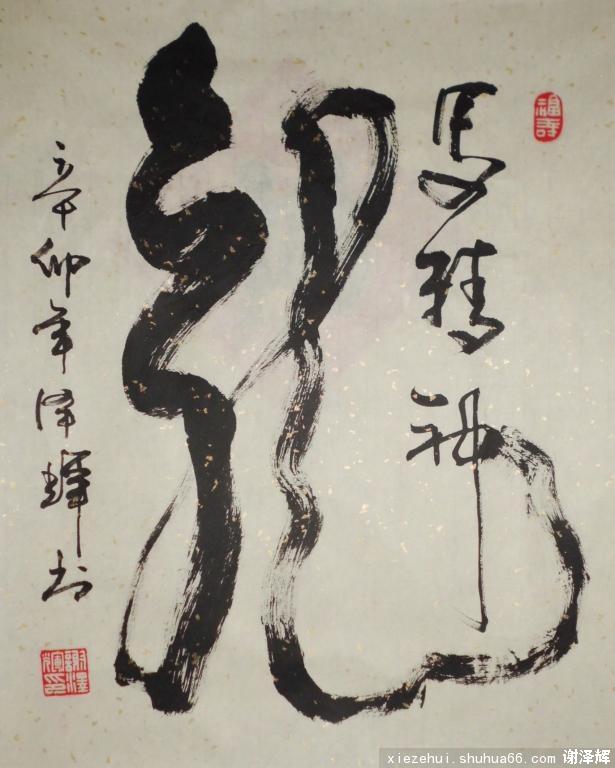 龍
马精神
辛卯年泽辉书
謝澤
輝印
xiezehui.shuhua66.com 谢泽辉